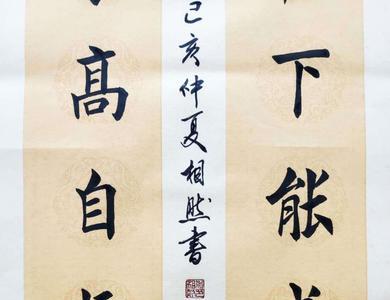 下能
己亥仲夏相然書
髙自